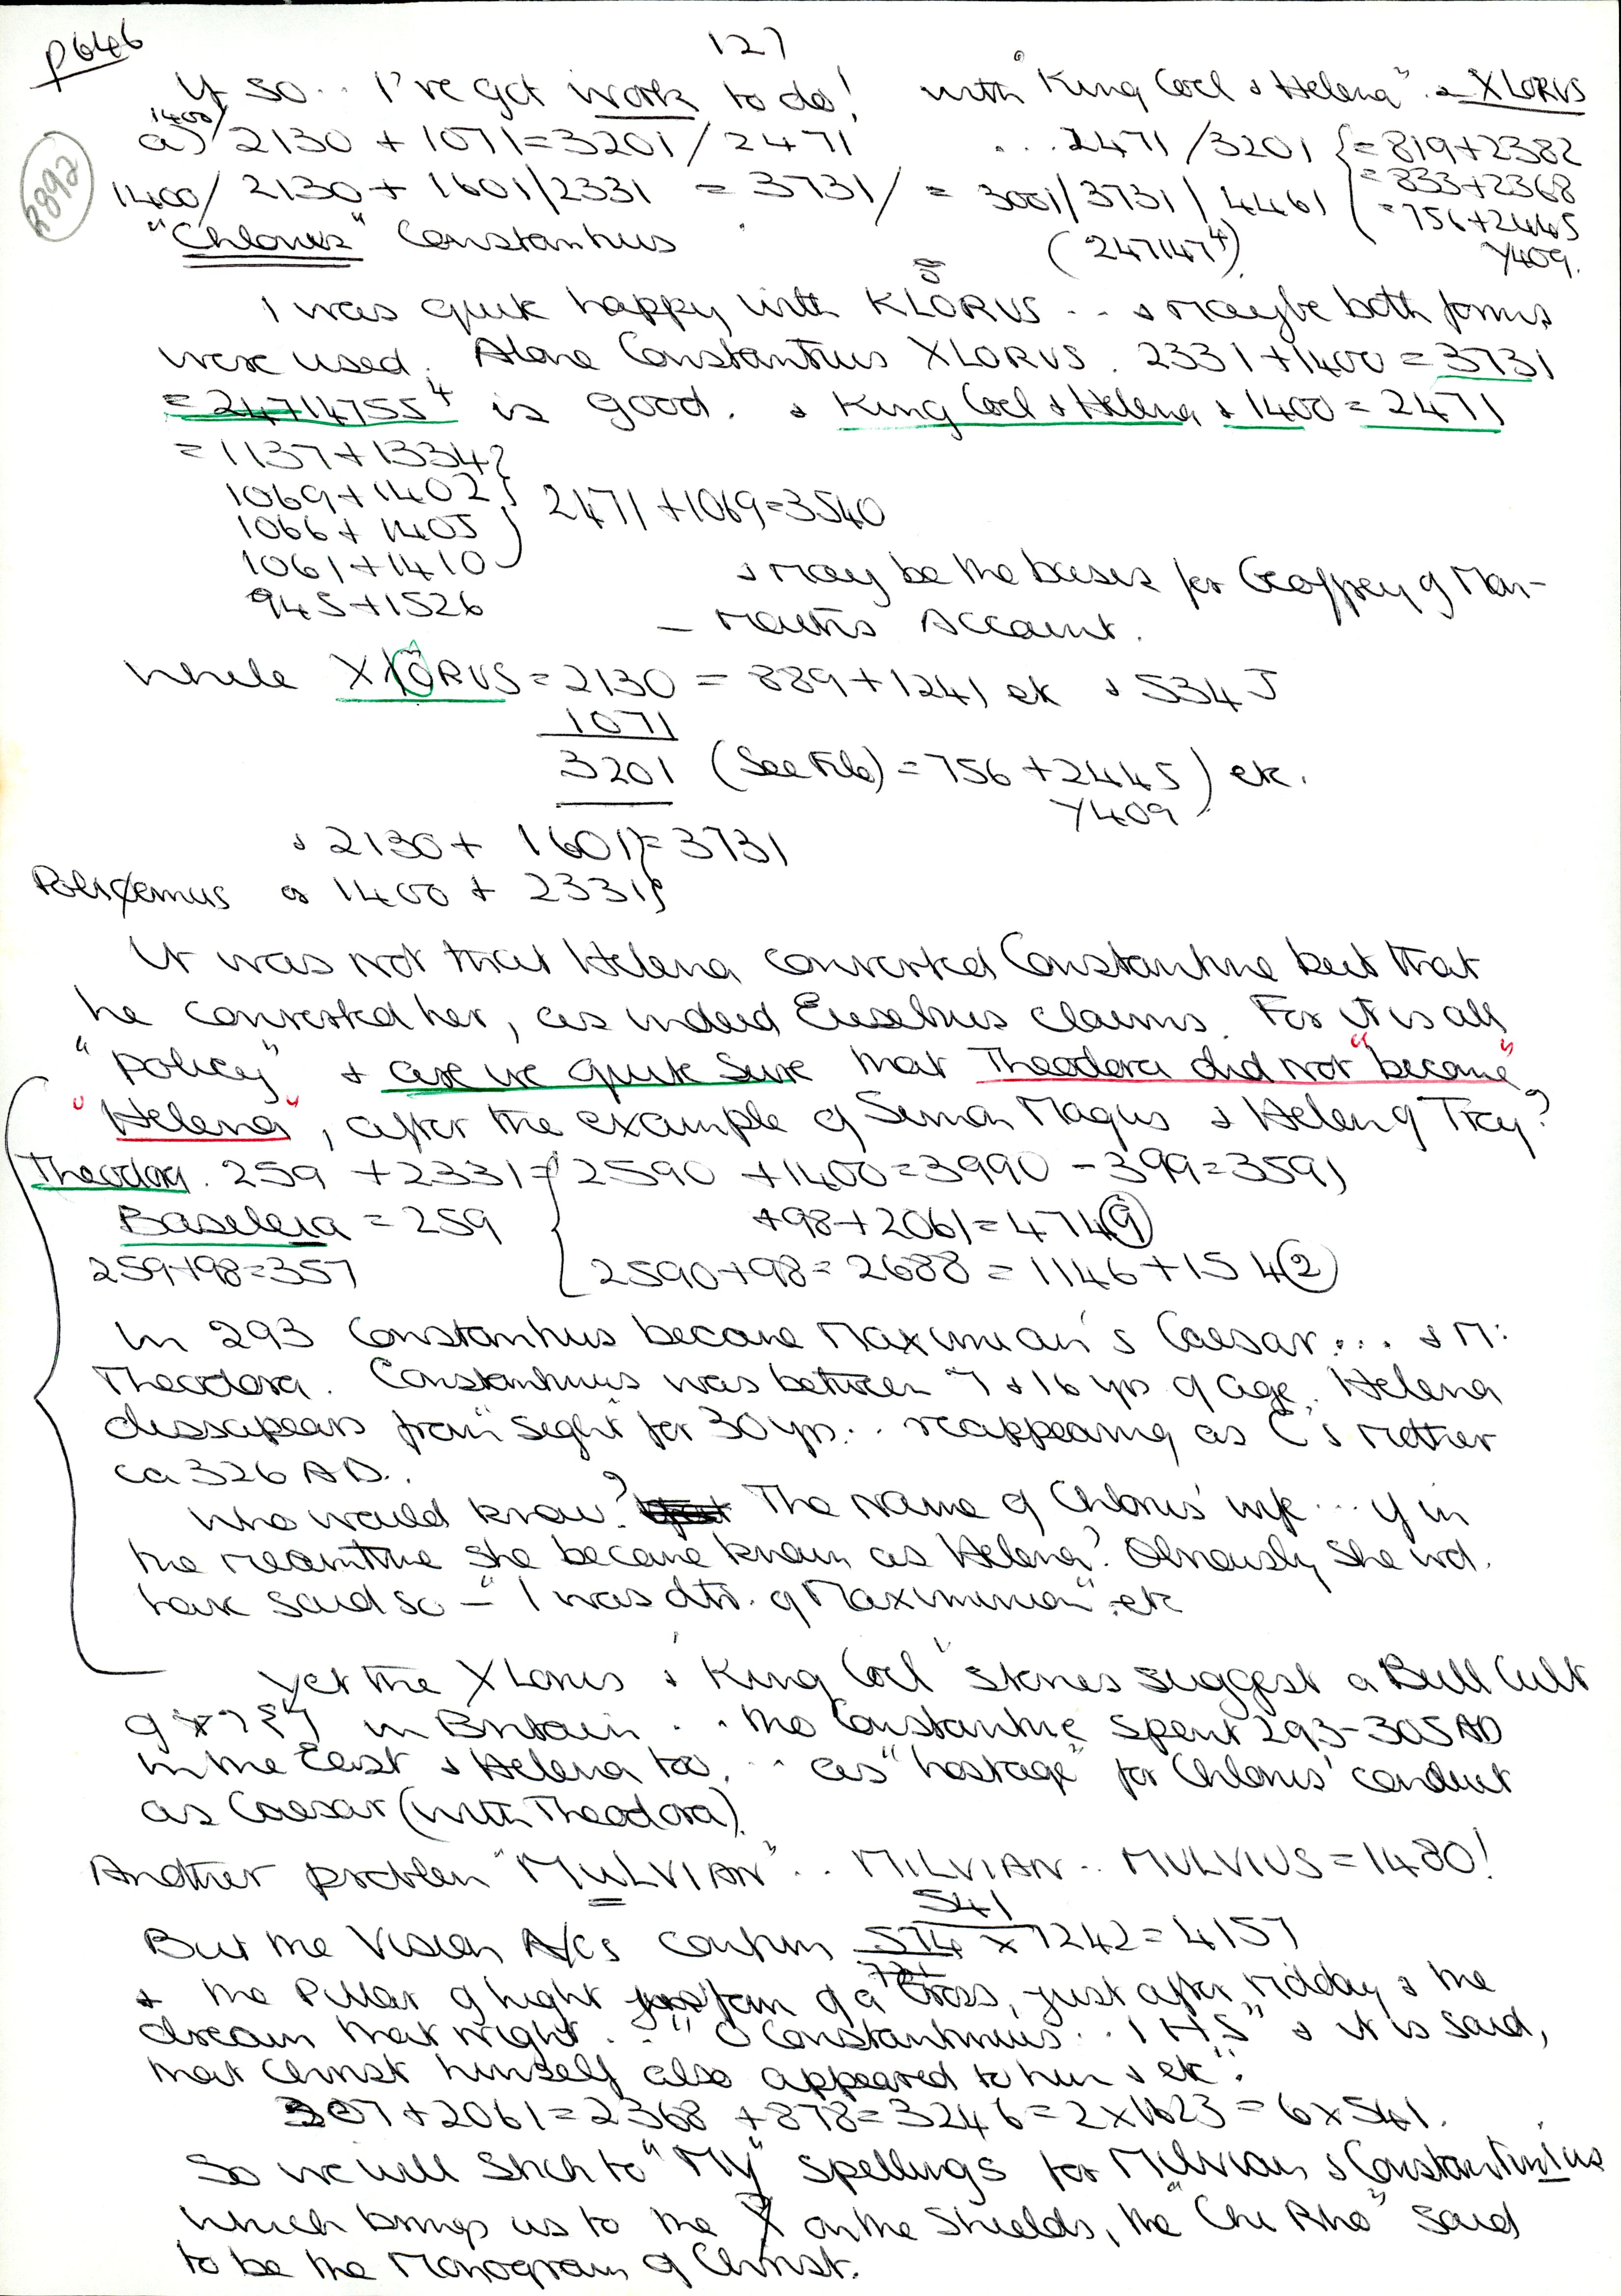 p646
127
If so.. I've got work to do! with "King Coel & Helena" & XLORUS
1400/
a) 2130 + 1071=3201/2471 ...2471/3201 {=819+2382
2892
=833+2368
1400/ 2130+ 1601/2331 = 3731/ = 3001/3731/4461 =756+2445
"Chlorus" Constantius (247147⁴) Y409.
I was quite happy with KLORUS.. & maybe both forms
were used. Alone Constantius XLORVS. 2331+1400=3731
=24714755⁴ is good. & King Coel & Helena & 1400=2471
=1137+1334}
1069+1402} 2471+1069=3540
1066+1405
1061+1410
945+1526
& may be the basis for Geoffrey of Mon-
-mouth's Account.
While XLORVS=2130 = 889+1241 etc & 534 J
1071
3201 (See File) = 756+2445) etc.
Y409
& 2130+ 1601}=3731
Polixemus or 1400 + 2331}
It was not that Helena converted Constantine but that
he converted her, as indeed Eusebius claims. For it is all
"policy" & are we quite sure that Theodora did not "become"
"Helena", after the example of Simon Magus & Helen of Troy?
Theodora. 259 +2331= 2590 +1400=3990 -399=3591
Baseleia = 259 +98+2061=4749
259+98=357 2590+98=2688=1146+1542
In 293 Constantius became Maximian's Caesar... & M:
Theodora. Constantinus was between 7 & 16 yrs. of age. Helena
dissapears from "sight" for 30 yrs... reappearing as C's Mother
ca 326 AD..
Who would know? The name of Chlorus' wife... if in
the meantime she became known as Helena? Obviously she wd.
have said so - "I was dtr. of Maximinian" etc
Yet the XLorus & 'King Coel' stories suggest a Bull Cult
of in Britain.. tho Constantine spent 293-305 AD
in the East & Helena too... as "hostage" for Chlorus' conduct
as Caesar (with Theodora).
Another problem "MULVIAN".. MILVIAN.. MULVIUS=1480!
541
But the Vision A/cs contain 574 x 7242=4157
& the Pillar of light form of a Cross, just after midday & the
dream that night... "O Constantinus.. IHS" & it is said,
that Christ himself also appeared to him & etc".
307+2061=2368 +878=3246=2x1623=6x541.
So we will stick to "My" spellings for Milvian & Constantinius
which brings us to the on the Shields, the "Chi Rho" said
to be the Monogram of Christ.